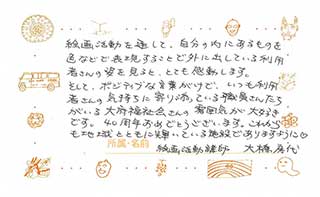 絵画活動を通して、自分の内にあるものを
色などで表現することで外に出している利用
者さんの姿を見ると、とても感動します。
そして、ポジティブな言葉がけで、いつも利用
者さんの気持ちに寄り添っている職員さんたち
がいる大府福祉会さんの雰囲気が大好き
です。40周年おめでとうございます。これから
も地域とともに輝いている施設でありますように
所属・名前
絵画活動講師 大橋